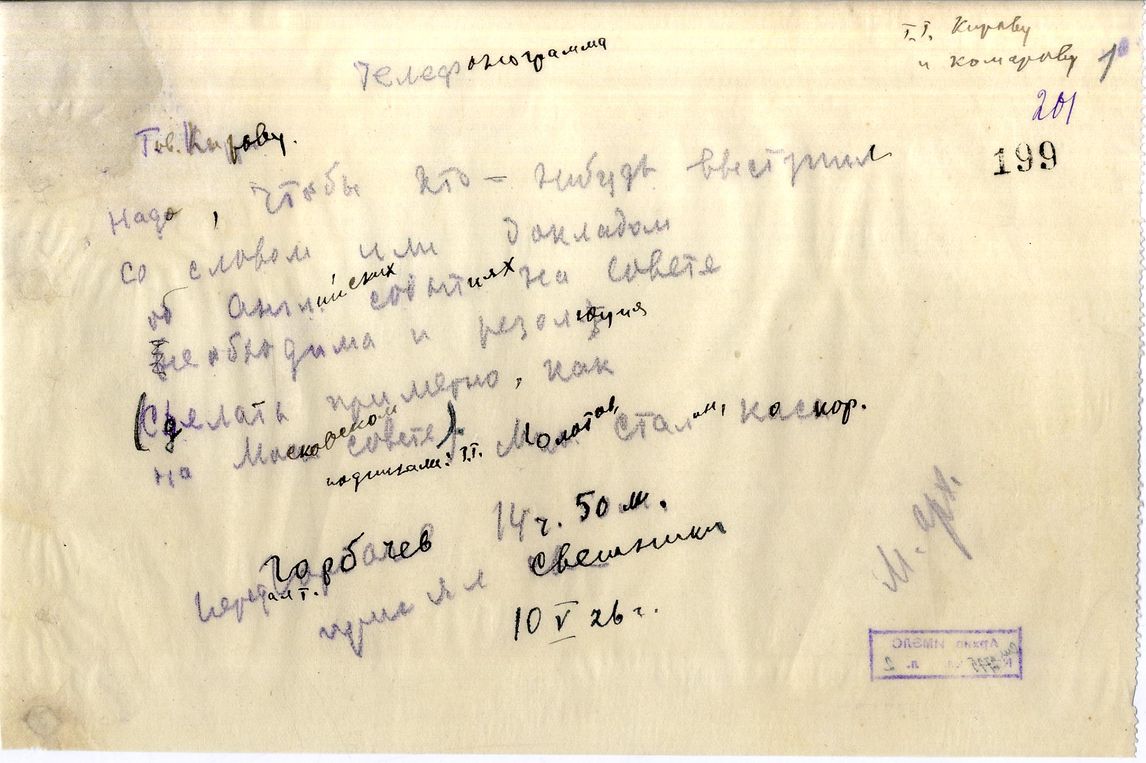 т.т. Кирову
и Комарову
1
201
199
Телефонограмма
Тов. Кирову.
Надо, чтобы кто-нибудь выступил
со словом или докладом
об английских событиях на совете
необходима и резолюция
(Сделать примерно, как
на Московском совете).
подписали: т.т. Молотов, Сталин,
14 ч. 50 м.
Передал т. Горбачев
принял Свешников
10 V 26 г.
М. арх.
Архив ИМЭЛС